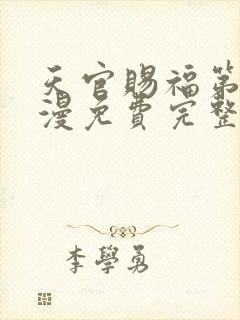 天官賜福第
漫免費完整
李學勇